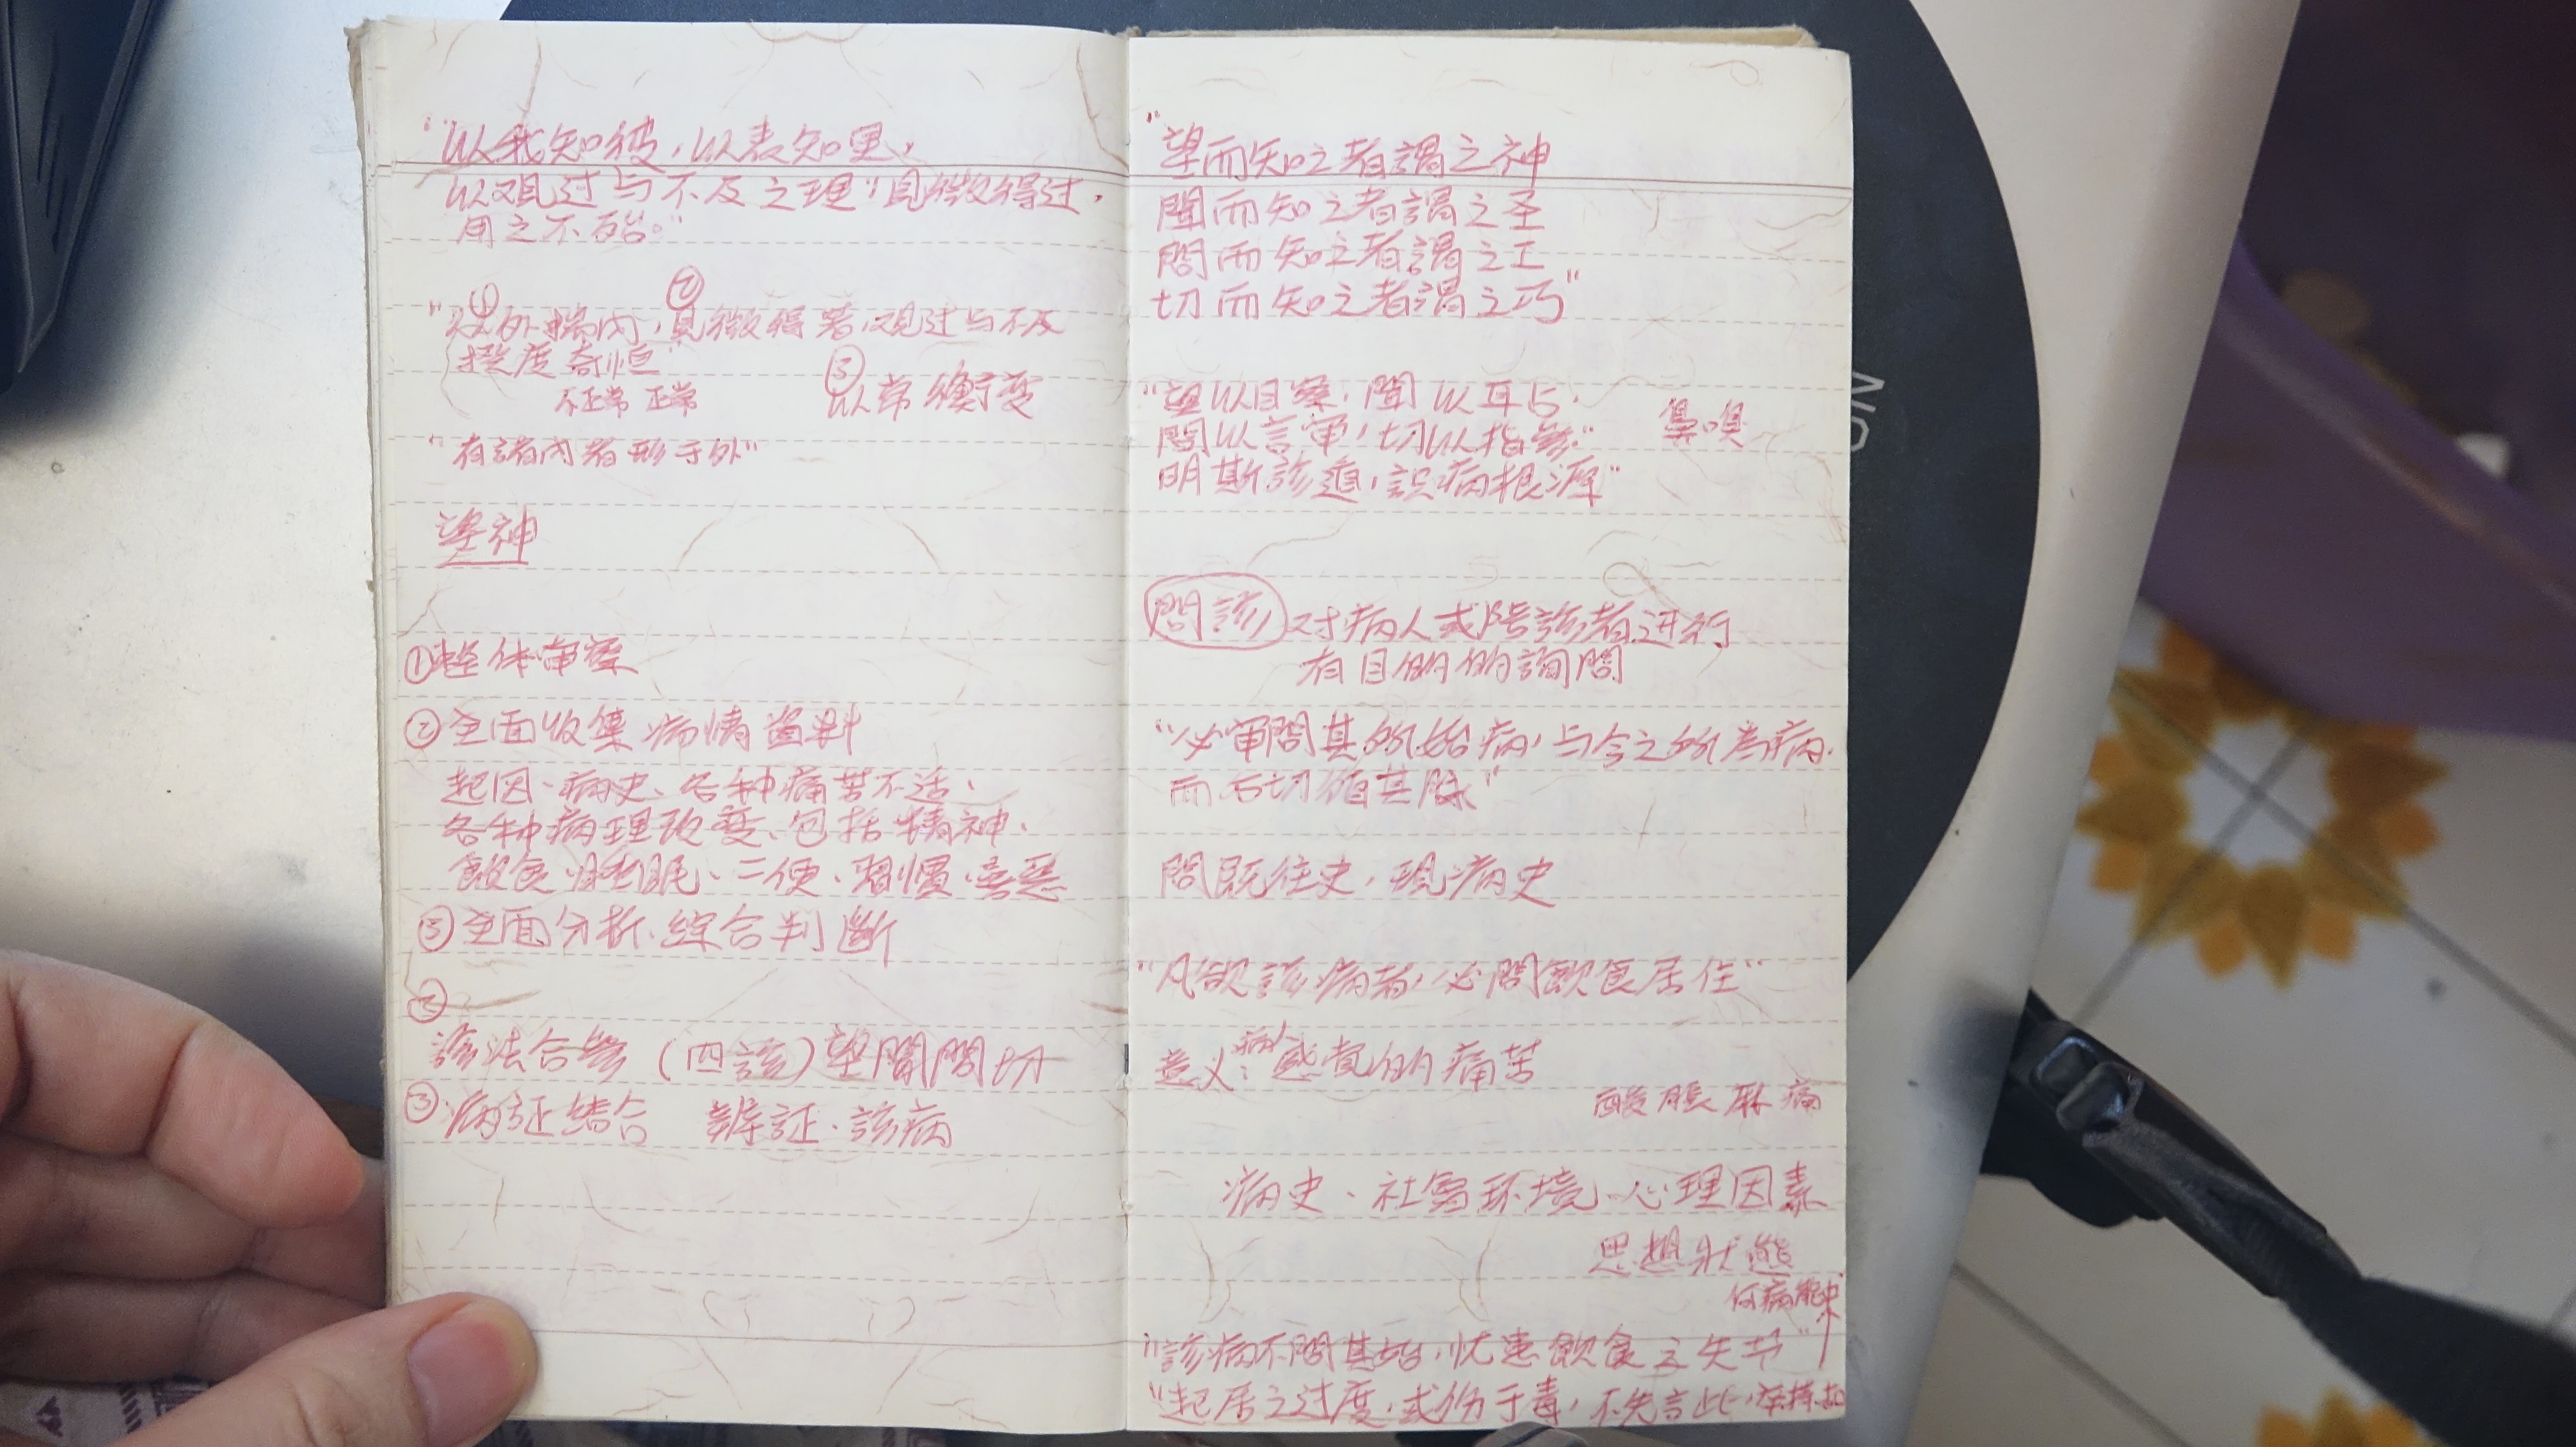 "以我知彼，以表知里，
以观过与不及之理"見微得过，
用之不殆。"
① ②
"以外揣內，見微得著，观过与不及
揆度奇恒"
不正常 正常
③
以常衡变
"有諸內者形于外"
望神
①整体审察
②全面收集病情資料
起因、病史、各种痛苦不适、
各种病理改变、包括精神、
飲食、睡眠、二便、習慣、喜恶
③全面分析、綜合判斷
②
診法合参（四診）望聞問切
③病証結合 辨証、診病
"望而知之者謂之神
聞而知之者謂之圣
問而知之者謂之工
切而知之者謂之巧"
"望以目察，聞以耳占，
鼻嗅
問以言审，切以指参"
明斯診道，識病根源"
問診 对病人或陪診者进行
有目的的詢問
"必审問其所始病，与今之所为病，
而后切循其脉"
問既往史，現病史
"凡欲診病者，必問飲食居住"
意义：病人感覚的痛苦
酸脹麻痛
病史、社會环境、心理因素
思想狀態
何病能中
"診病不問其始，忧患飲食之失节"
"起居之过度，或伤于毒，不先言此，卒持